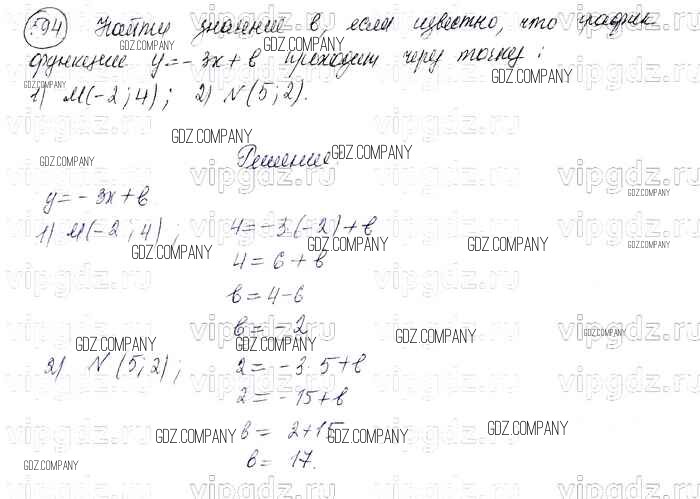 594 Найти значение b, если известно, что график
функции y = -3x + b проходит через точку:
1) M(-2; 4); 2) N(5; 2).
Решение:
y = -3x + b
1) M(-2; 4); 4 = -3·(-2) + b
4 = 6 + b
b = 4 - 6
b = -2
2) N(5; 2); 2 = -3·5 + b
2 = -15 + b
b = 2 + 15
b = 17.
GDZ.COMPANY
vipgdz.ru